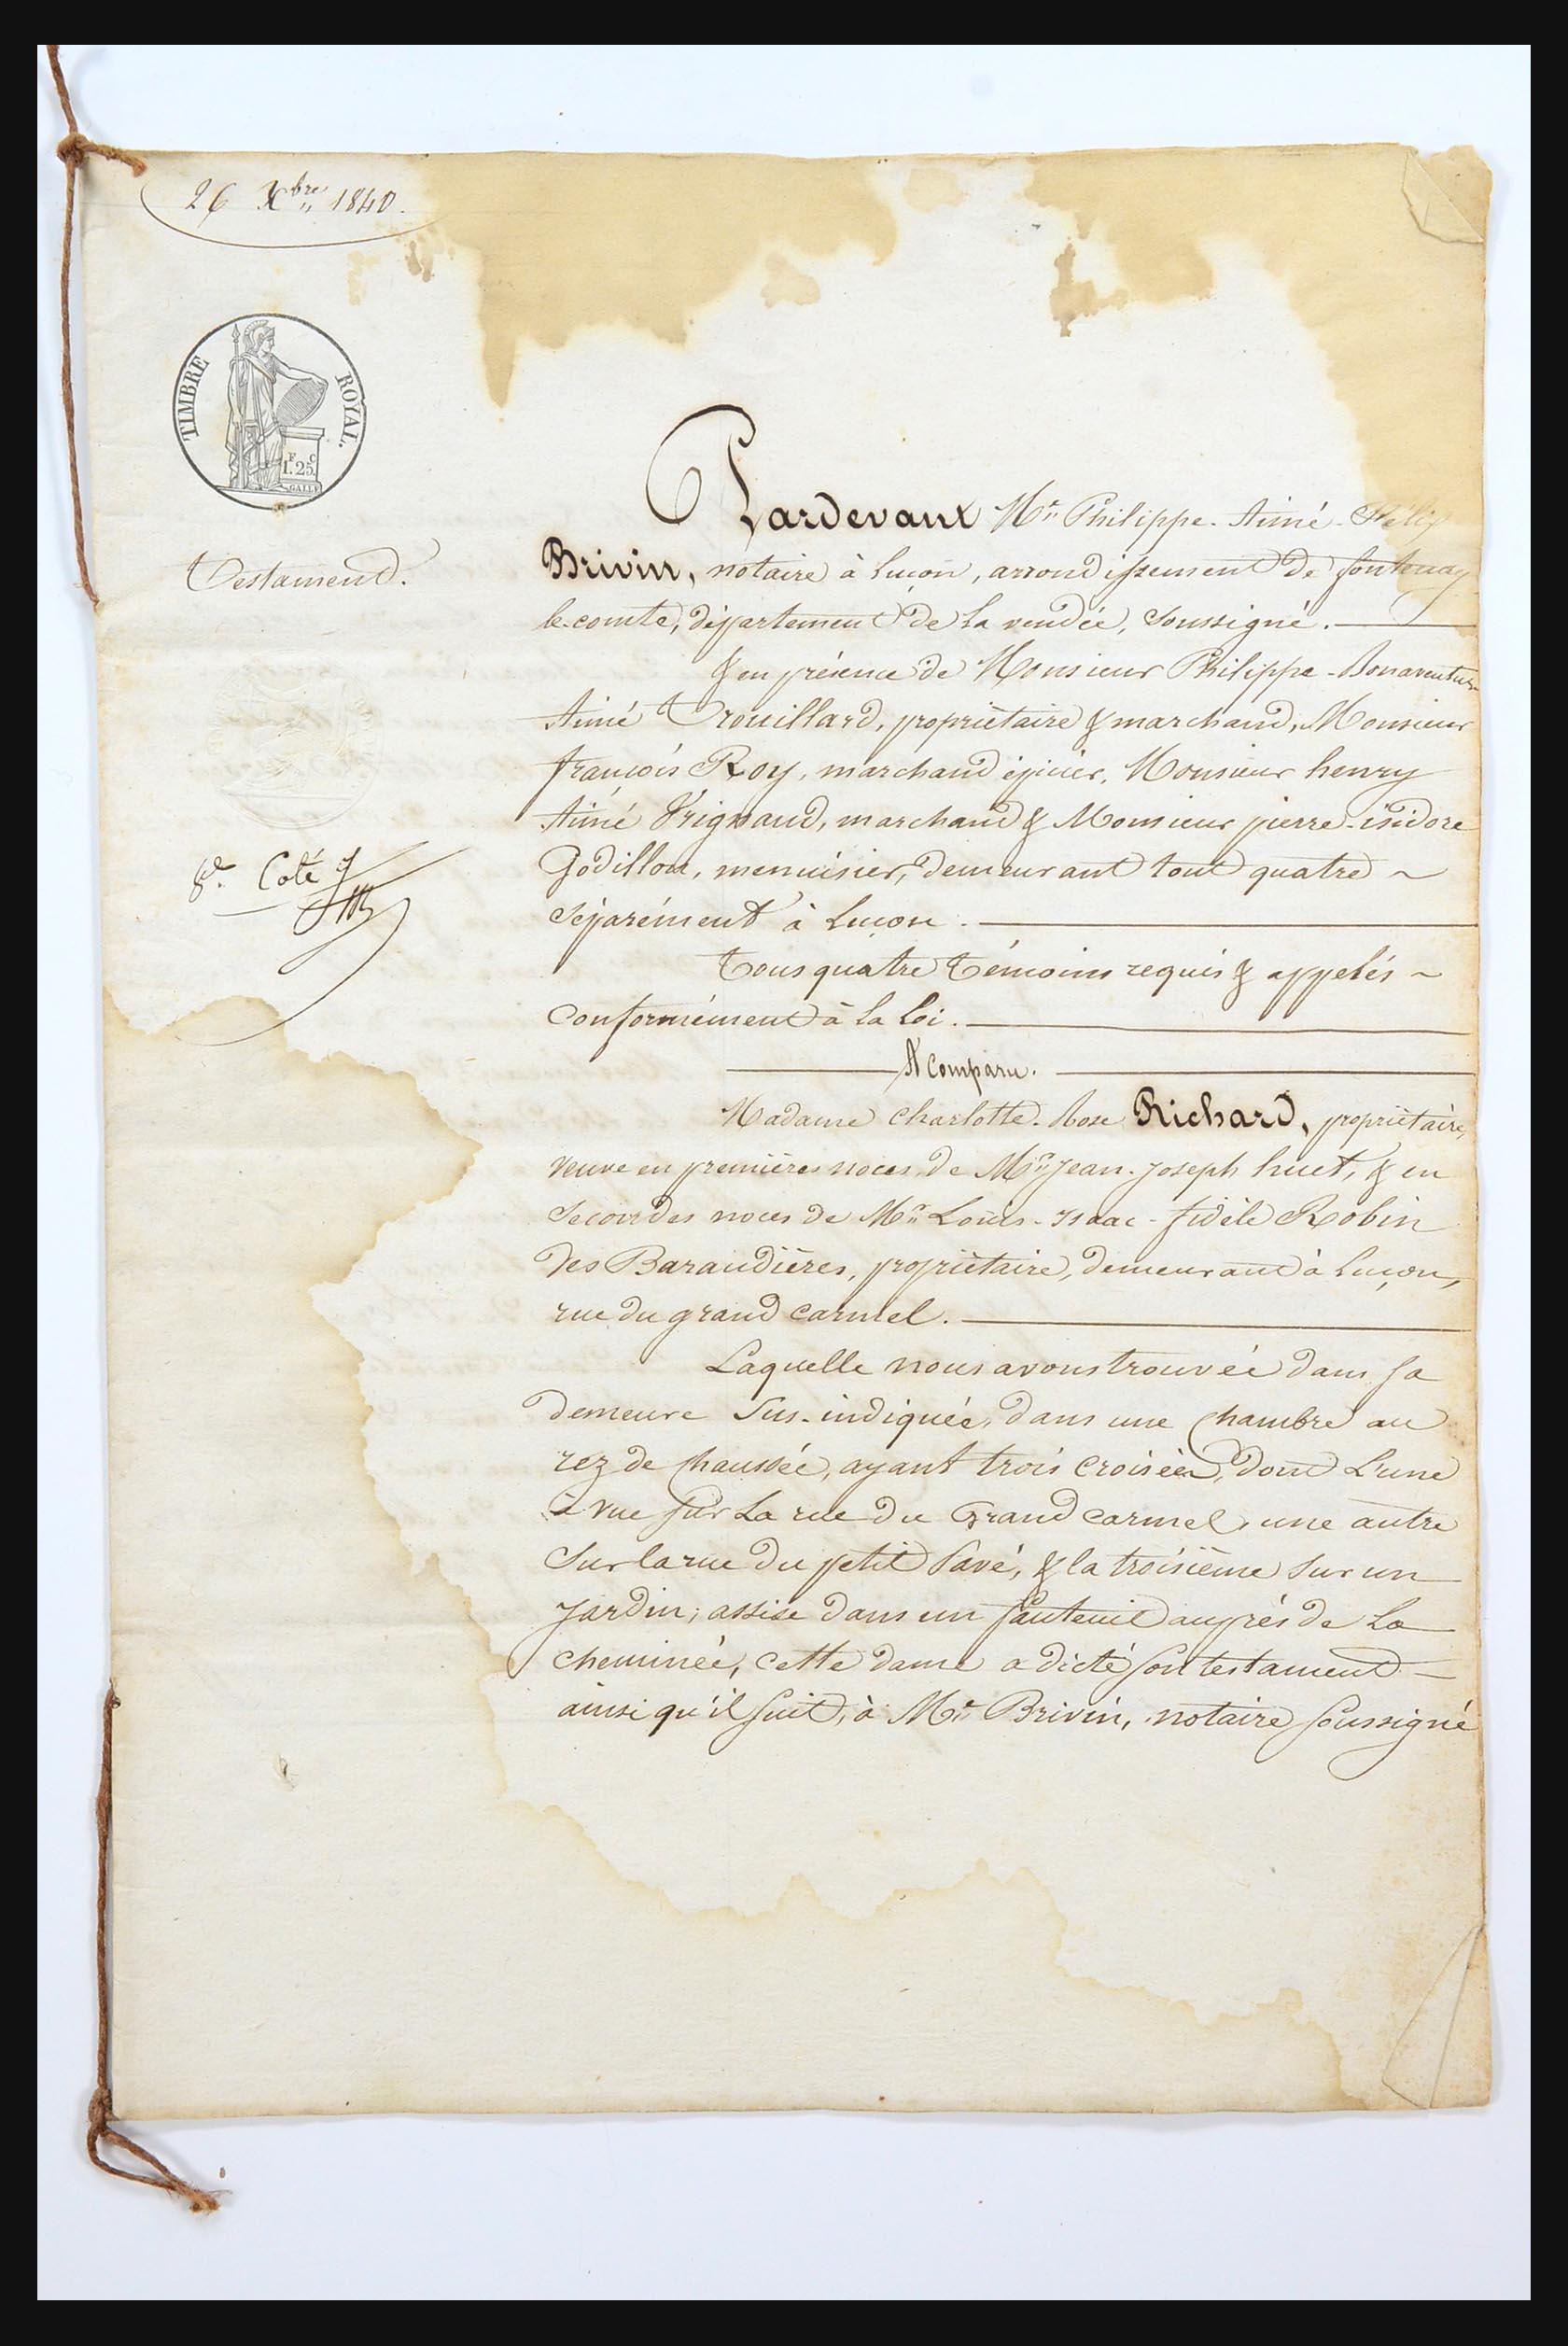 26 Xbre 1840.
TIMBRE ROYAL.
1.F 25.c
GALLE
Testament.
Pardevant Me Philippe-Aimé-Félix
Brivin, notaire à Luçon, arrondissement de fontenay
le-comte, département de la vendée, soussigné.
& en présence de Monsieur Philippe-Bonaventure
Aimé Trouillard, propriétaire & marchand, Monsieur
françois Roy, marchand épicier, Monsieur henry
Aimé Vrignaud, marchand & Monsieur pierre-isidore
Godillon, menuisier, demeurant tout quatre ~
séparément à Luçon.
Tous quatre témoins requis & appelés ~
conformément à la Loi.
A Comparu.
Madame Charlotte-Rose Richard, propriétaire,
veuve en premières noces de Mr Jean-Joseph huet, & en
secondes noces de Mr Louis-Isaac-fidèle Robin
des Baraudières, propriétaire, demeurant à Luçon,
rue du grand carmel.
Laquelle nous avons trouvée dans sa
demeure sus-indiquée, dans une chambre au
rez de chaussée, ayant trois croisées, dont L'une
à vue sur La rue du Grand carmel, une autre
sur la rue du petit Pavé, & la troisième sur un
jardin; assise dans un fauteuil auprès de La
cheminée, cette dame a dicté son testament
ainsi qu'il suit, à Me Brivin, notaire soussigné
Coté